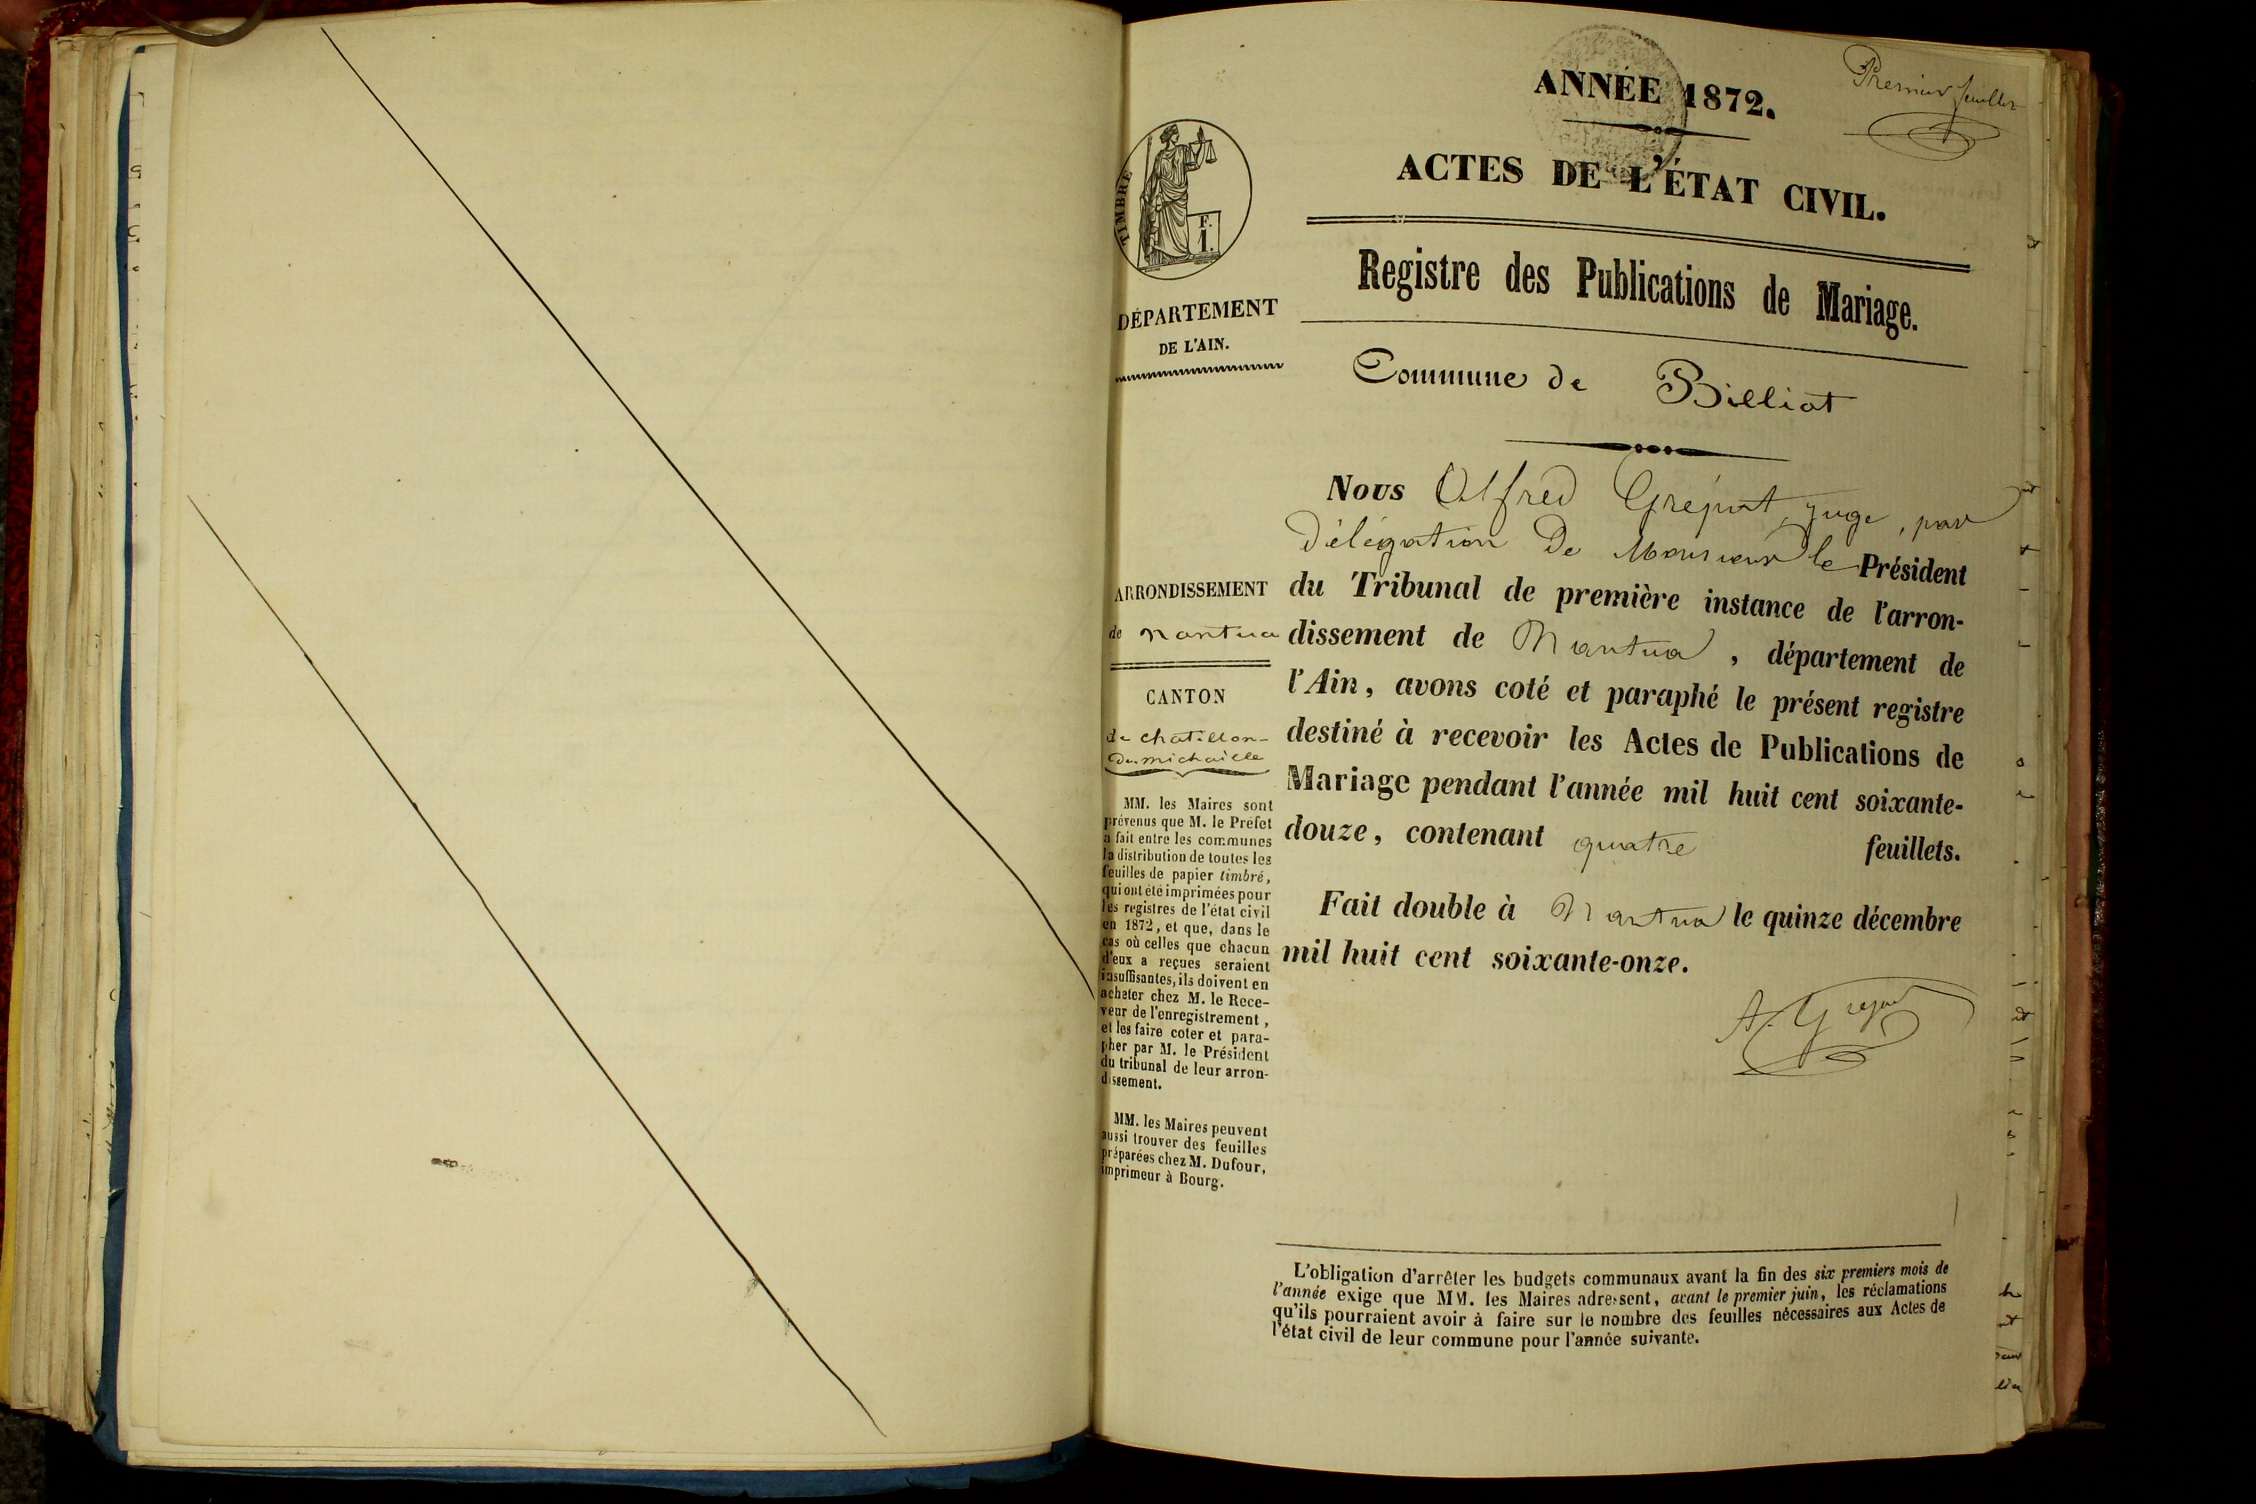 Premier feuillet
ANNÉE 1872.
ACTES DE L'ÉTAT CIVIL.
TIMBRE
F.
1.
DÉPARTEMENT
DE L'AIN.
Registre des Publications de Mariage.
Commune de Billiat
ARRONDISSEMENT
de Nantua
CANTON
de chatillon-
de-michaille
MM. les Maires sont
prévenus que M. le Préfet
a fait entre les communes
la distribution de toutes les
feuilles de papier timbré,
qui ont été imprimées pour
les registres de l'état civil
en 1872, et que, dans le
cas où celles que chacun
d'eux a reçues seraient
insuffisantes, ils doivent en
acheter chez M. le Rece-
veur de l'enregistrement,
et les faire coter et para-
pher par M. le Président
du tribunal de leur arron-
dissement.
MM. les Maires peuvent
aussi trouver des feuilles
préparées chez M. Dufour,
imprimeur à Bourg.
Nous Alfred juge, par
délégation De Monsieur le Président
du Tribunal de première instance de l'arron-
dissement de Nantua, département de
l'Ain, avons coté et paraphé le présent registre
destiné à recevoir les Actes de Publications de
Mariage pendant l'année mil huit cent soixante-
douze, contenant quatre feuillets.
Fait double à Nantua le quinze décembre
mil huit cent soixante-onze.
L'obligation d'arrêter les budgets communaux avant la fin des six premiers mois de
l'année exige que MM. les Maires adressent, avant le premier juin, les réclamations
qu'ils pourraient avoir à faire sur le nombre des feuilles nécessaires aux Actes de
l'état civil de leur commune pour l'année suivante.